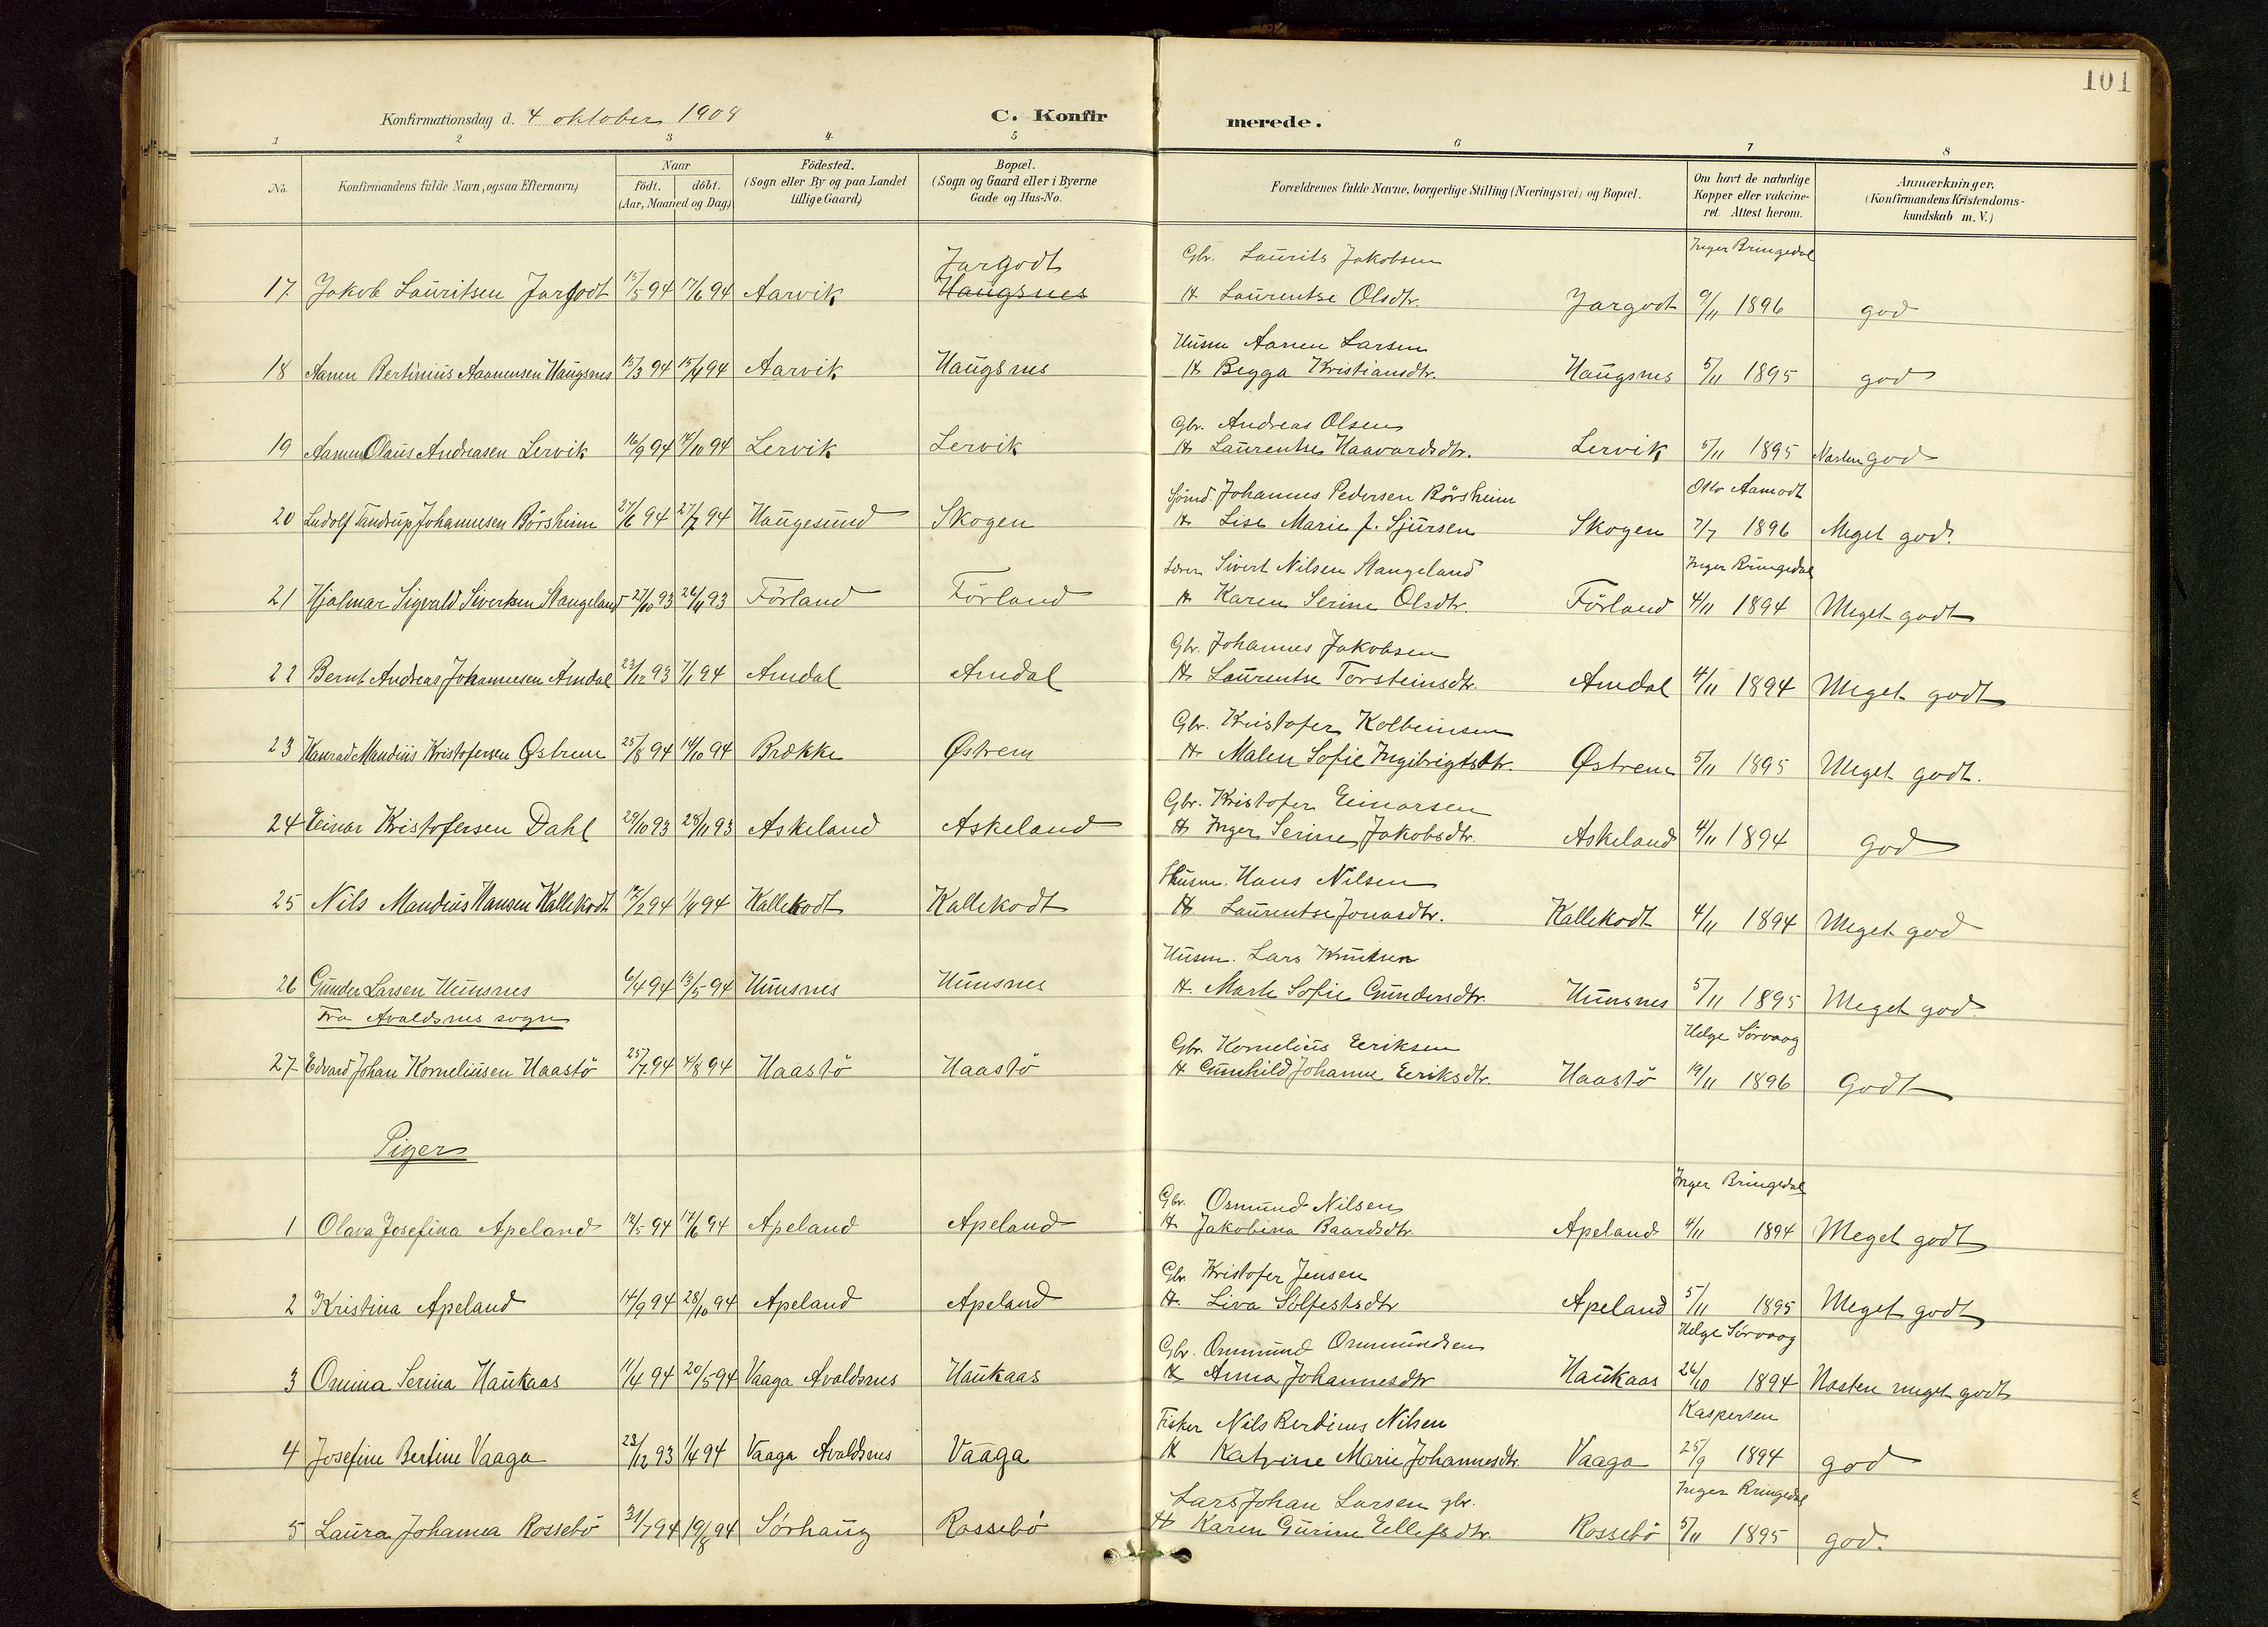 101
Konfirmationsdag d. 4 oktober 1908
C. Konfirmerede.
1 2 3 4 5 6 7 8
No.
Konfirmandens fulde Navn, ogsaa Efternavn)
Naar
födt. döbt.
(Aar, Maaned og Dag)
Födested.
(Sogn eller By og paa Landet
tillige Gaard)
Bopæl.
(Sogn og Gaard eller i Byerne
Gade og Hus-No.
Forældrenes fulde Navne, borgerlige Stilling (Næringsvei) og Bopæl.
Om havt de naturlige
Kopper eller vakcine-
ret. Attest herom.
Anmærkninger.
(Konfirmandens Kristendoms-
kundskab m. V.)
Jargodt Gbr. Laurits Jakobsen Inger Bringedal
17. Jakob Lauritsen Jargodt 15/5 94 17/6 94 Aarvik Haugsnes H Laurentse Olsdtr. Jargodt 9/11 1896 god
Husm Aanen Larsen
18 Aanen Bertinius Aanensen Haugsnes 15/3 94 15/4 94 Aarvik Haugsnes H Begga Kristiansdtr. Haugsnes 5/11 1895 god
Gbr. Andreas Olsen
19 Aanen Olaus Andreasen Lervik 16/9 94 7/10 94 Lervik Lervik H Laurentse Haavardsdtr. Lervik 5/11 1895 Næsten god
Sjömd. Johannes Pedersen Börsheim Aamodt
20 Ludolf Tandrup Johannesen Börsheim 27/6 94 27/7 94 Haugesund Skogen H Lise Marie f. Sjursen Skogen 7/7 1896 Meget god.
Lærer Sivert Nilsen Stangeland Inger Bringedal
21 Hjalmar Sigvald Sivertsen Stangeland 27/10 93 26/11 93 Förland Förland H Karen Serine Olsdtr. Förland 4/11 1894 Meget godt
Gbr. Johannes Jakobsen
22 Bernt Andreas Johannesen Amdal 23/12 93 7/1 94 Amdal Amdal H Laurentse Torsteinsdtr. Amdal 4/11 1894 Meget godt
Gbr. Kristofer Kolbeinsen
23 Konrad Mandius Kristofersen Østrem 25/8 94 14/10 94 Brække Østrem H Malen Sofie Ingibrigtsdtr. Østrem 5/11 1895 Meget godt.
Gbr. Kristofer Einarsen
24 Einar Kristofersen Dahl 29/10 93 28/11 93 Askeland Askeland H Inger Serine Jakobsdtr. Askeland 4/11 1894 god
Husm. Hans Nilsen
25 Nils Mandius Hansen Kallekodt 17/2 94 1/4 94 Kallekodt Kallekodt H Laurentse Jonasdtr. Kallekodt 4/11 1894 Meget god
Husm. Lars Knutsen
26 Gunder Larsen Hunsnes 6/4 94 13/5 94 Hunsnes Hunsnes H. Marte Sofie Gundersdtr. Hunsnes 5/11 1895 Meget god
Fra Avaldsnes sogn
Gbr. Kornelius Eeriksen Helge Sørvaag
27 Edvard Johan Korneliusen Haastö 25/7 94 4/8 94 Haastö Haastö H Gunhild Johanne Eeriksdtr. Haastö 19/11 1896 Godt
Piger
Gbr. Osmund Nilsen Inger Bringedal
1 Olava Josefina Apeland 12/5 94 17/6 94 Apeland Apeland H Jakobina Baardsdtr. Apeland 4/11 1894 Meget godt
Gbr Kristofer Jensen
2 Kristina Apeland 14/9 94 28/10 94 Apeland Apeland H. Liva Solfestsdtr Apeland 5/11 1895 Meget godt
Gbr. Ommund Ommundsen Helge Sørvaag
3 Omina Serina Haukaas 11/4 94 20/5 94 Vaaga Avaldsnes Haukaas H Anna Johannesdtr Haukaas 26/10 1894 Næsten meget godt
Fisker Nils Berdines Nilsen Kaspersen
4 Josefine Bertine Vaaga 23/12 93 1/4 94 Vaaga Avaldsnes Vaaga H Katrine Marie Johannesdtr. Vaaga 25/9 1894 god
Lars Johan Larsen gbr. Inger Bringedal
5 Laura Johanna Rossebö 31/7 94 19/8 94 Sörhaug Rossebö H Karen Gurine Ellefsdtr. Rossebö 5/11 1895 god.